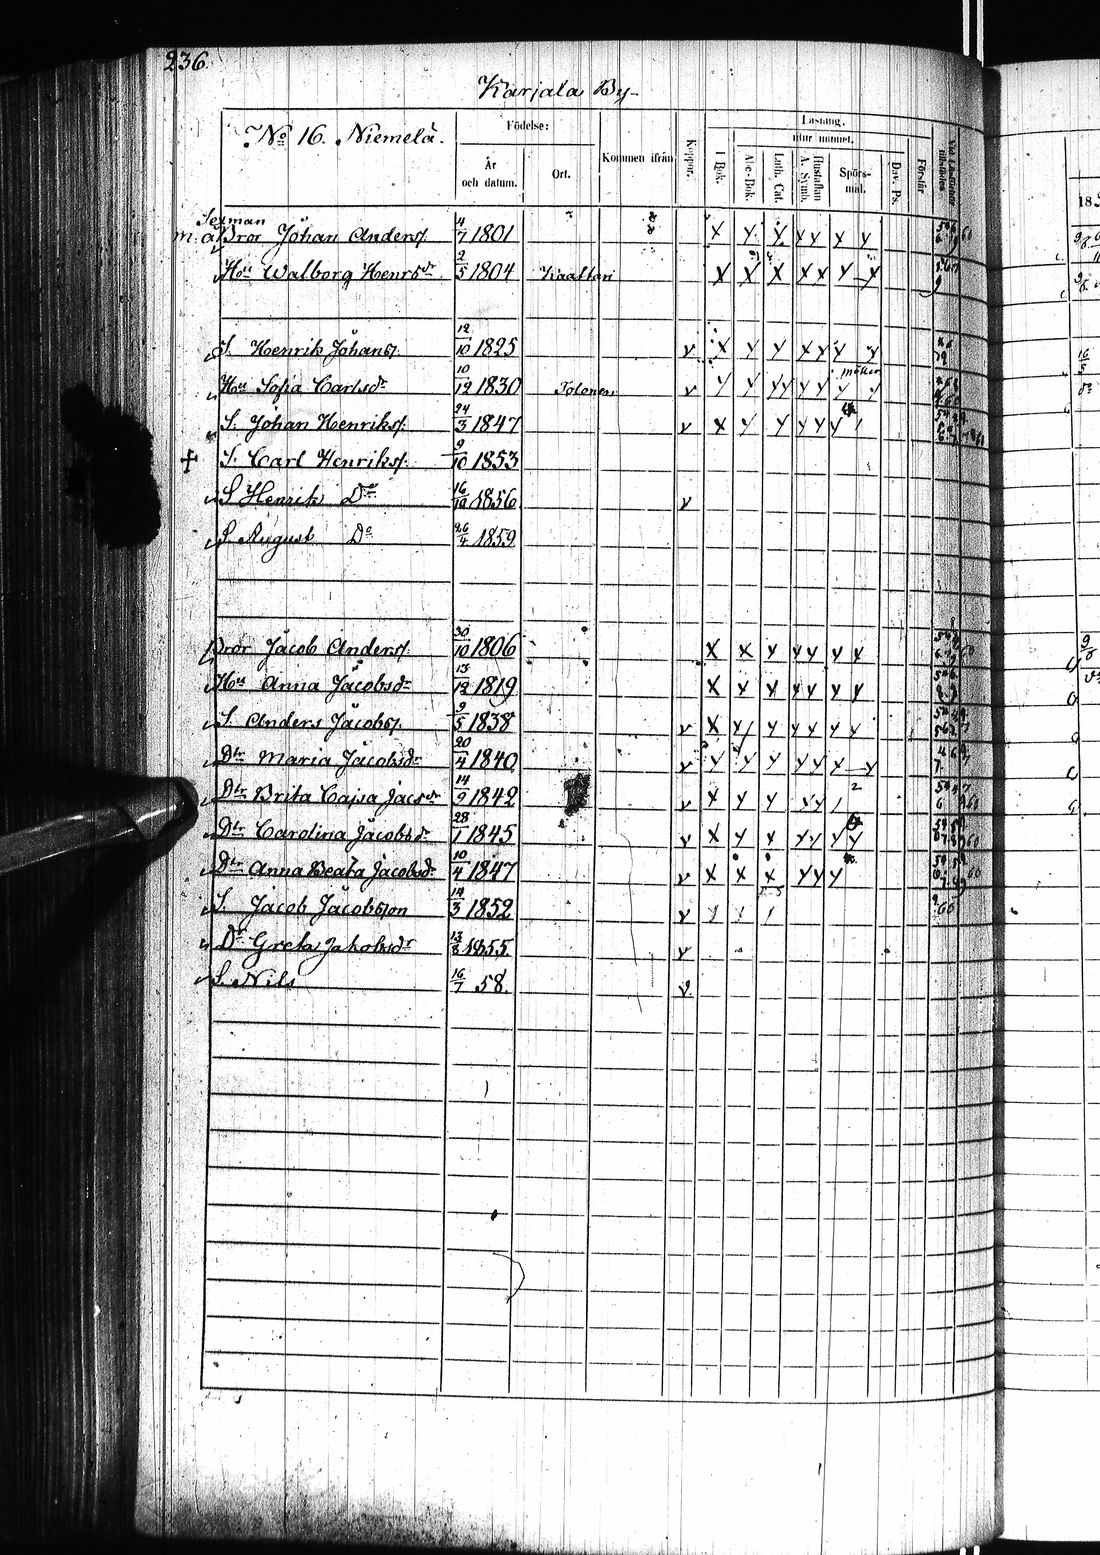 236
Karjala By
No 16. Niemelä.
Födelse:
År och datum.
Ort.
Kommen ifrån
Koppor.
Läsning.
I Bok.
utur minnet.
Abc-Bok.
Luth. Cat.
Hustaflan A. Symb.
Spörs-mål.
Dav. Ps.
Förstår.
18
Sexman
Bror Johan Anders. 4/7 1801 X Y X Y Y Y Y
Hu Walborg Henrsdr 2/5 1804 Kaattari X X X X X Y X
S. Henrik Johans. 12/10 1825 v X Y Y X Y Y Y
Hu Sofia Carlsdr 10/12 1830 Tolonen v Y Y Y Y Y Y Y Y
S. Johan Henriks. 24/3 1847 v X Y Y Y Y Y 1
+ S. Carl Henriks. 9/10 1853
S Henrik Do 16/10 1856 v
S August Do 26/4 1859
Bror Jacob Anders. 30/10 1806 X X Y Y Y Y Y
Hu Anna Jacobsdr 13/12 1819 X Y Y Y Y Y Y
S. Anders Jacobs. 9/5 1838 v X Y Y Y Y Y Y
Dtr Maria Jacobsdr 20/4 1840 v Y Y Y Y Y Y Y
Dtr Brita Cajsa Jacsdr 14/9 1842 v X Y Y X Y 1 2
Dtr Carolina Jacobsdr 28/1 1845 v X Y X Y Y Y Y
Dtr Anna Beata Jacobsdr 10/4 1847 v X X X Y Y Y
S Jacob Jacobsson 14/3 1852 v 1 1 1
Dr Greta Jakobsdr 13/8 1855. v
S. Nils 16/7 58. v